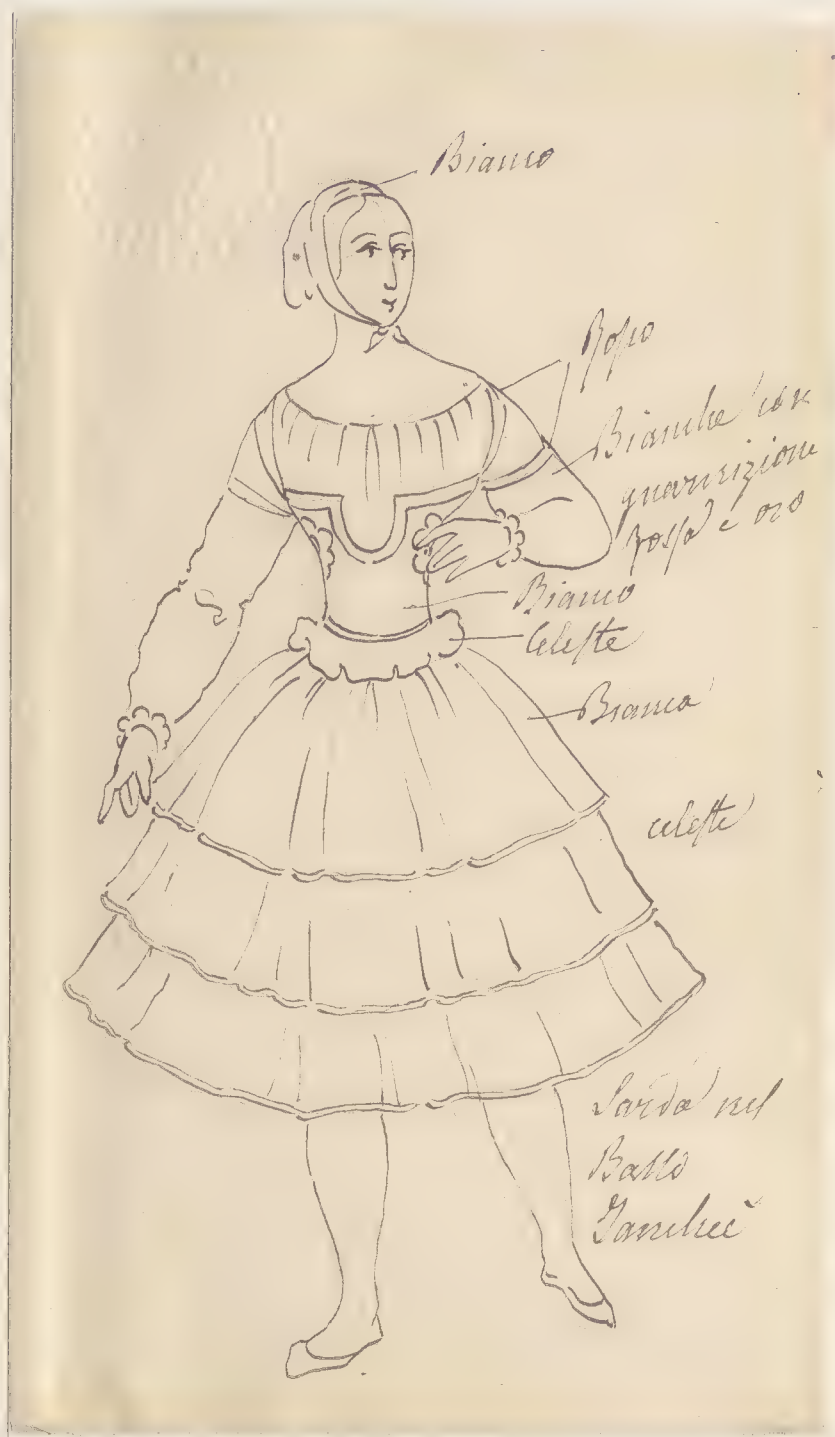 Bianco
Rosso
Bianche con
guarnizione
rossa e oro
Bianco
Celeste
Bianca
celeste
Sarda nel
Ballo